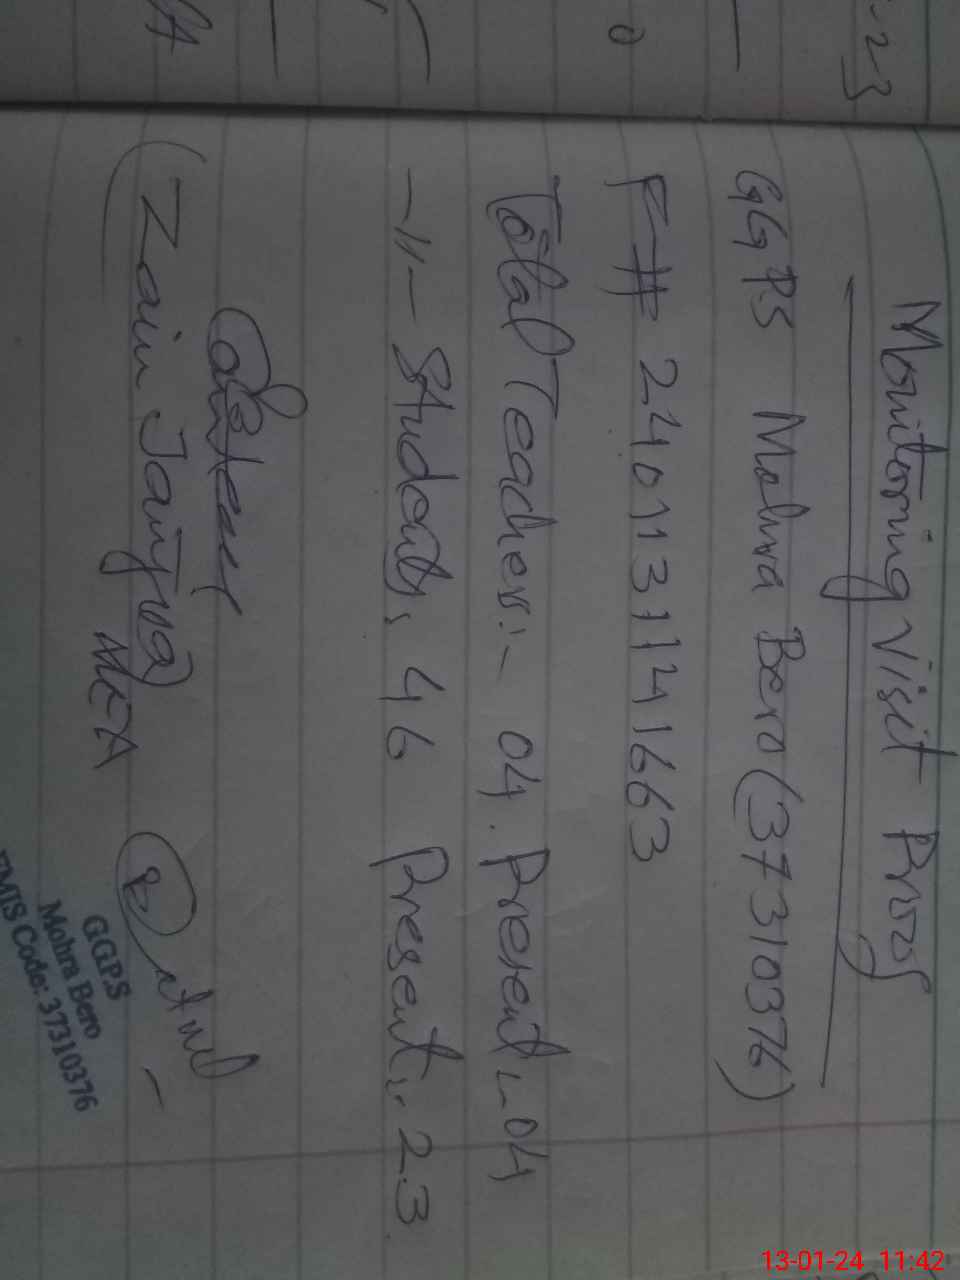 Monitoring Visit Proof
GGPS Mohra Bero (37310376)
F# 2401131141663
Total Teachers:- 04. Present:- 04
-11- Students: 46 Present:- 23
(Zain Janjua)
MEA
GGPS
Mohra Bero
EMIS Code: 37310376
13-01-24 11:42